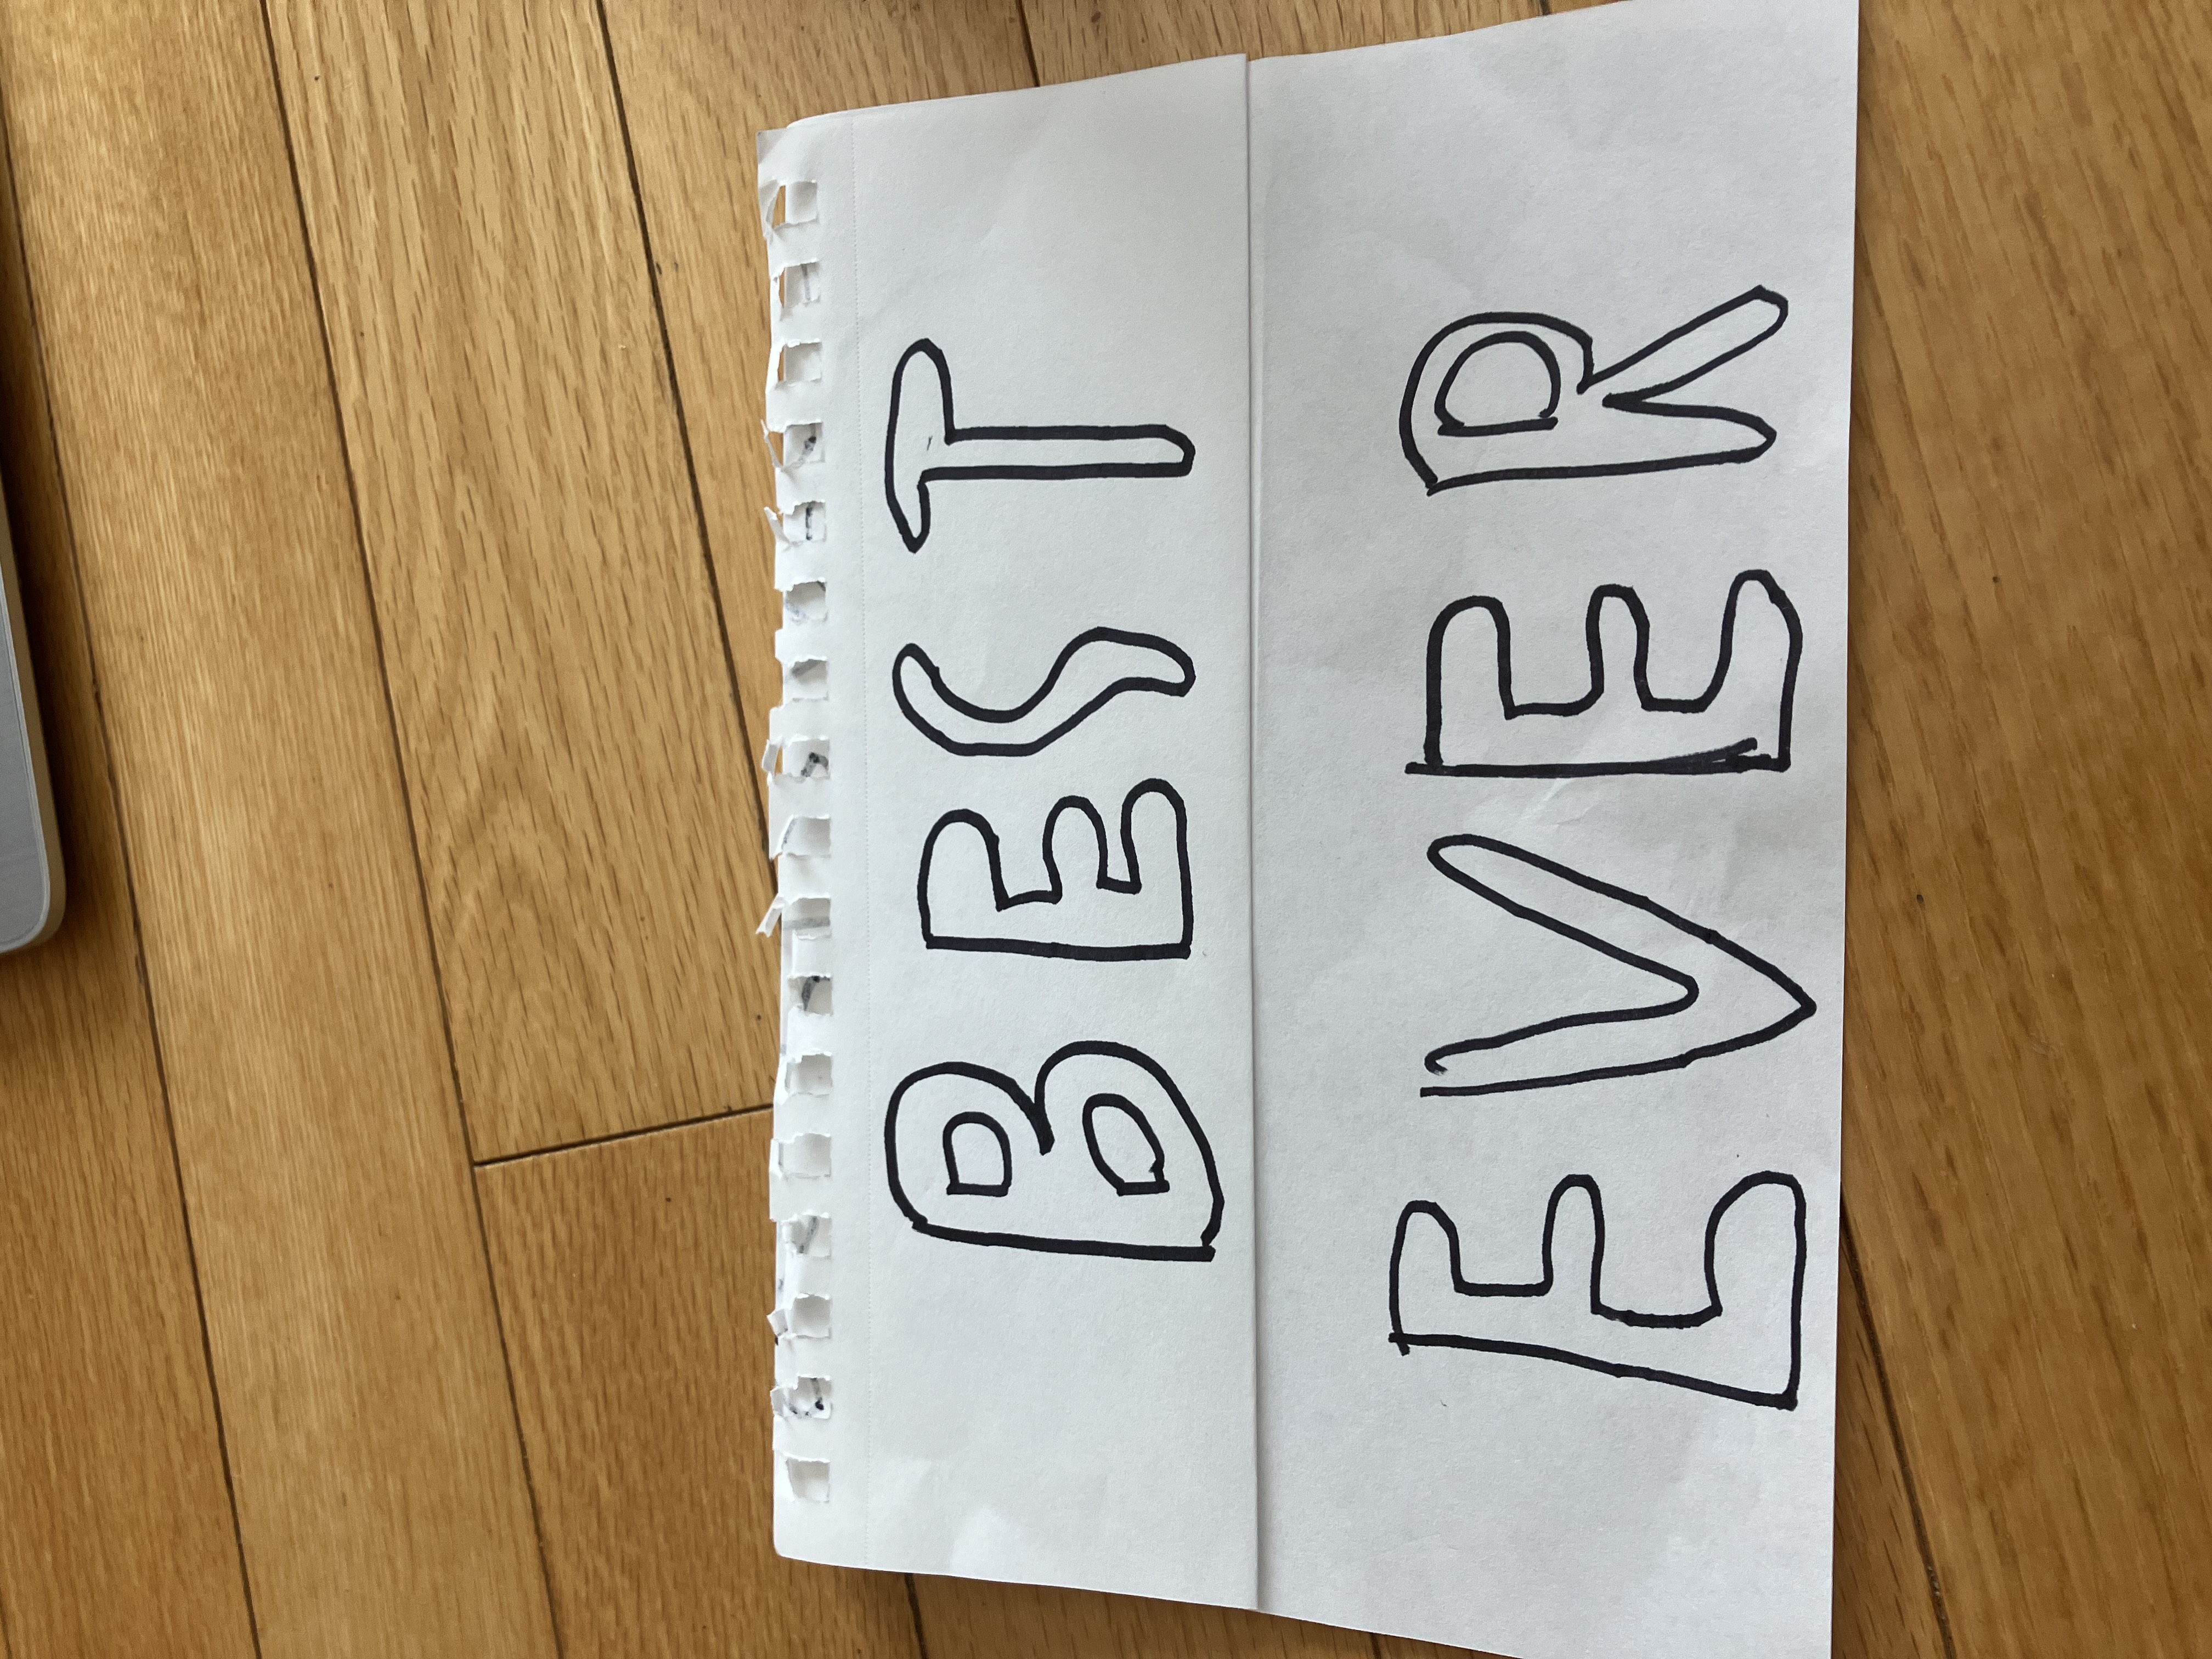 BEST
EVER